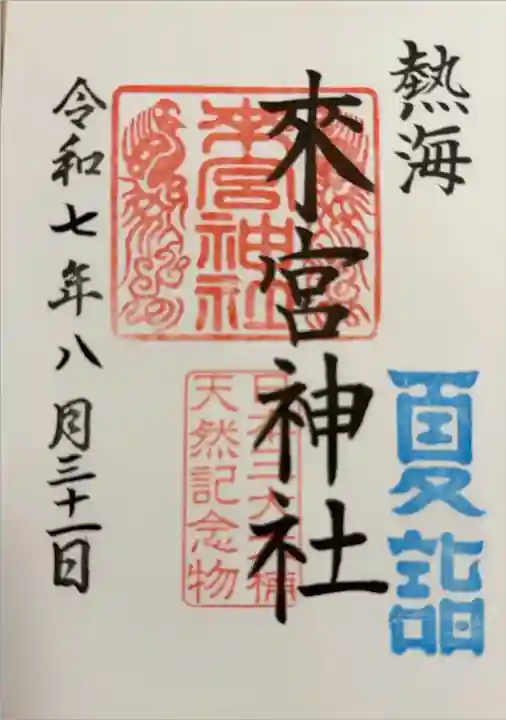 熱海
夏詣
來宮神社
来宮神社
天然記念物
令和七年八月三十一日